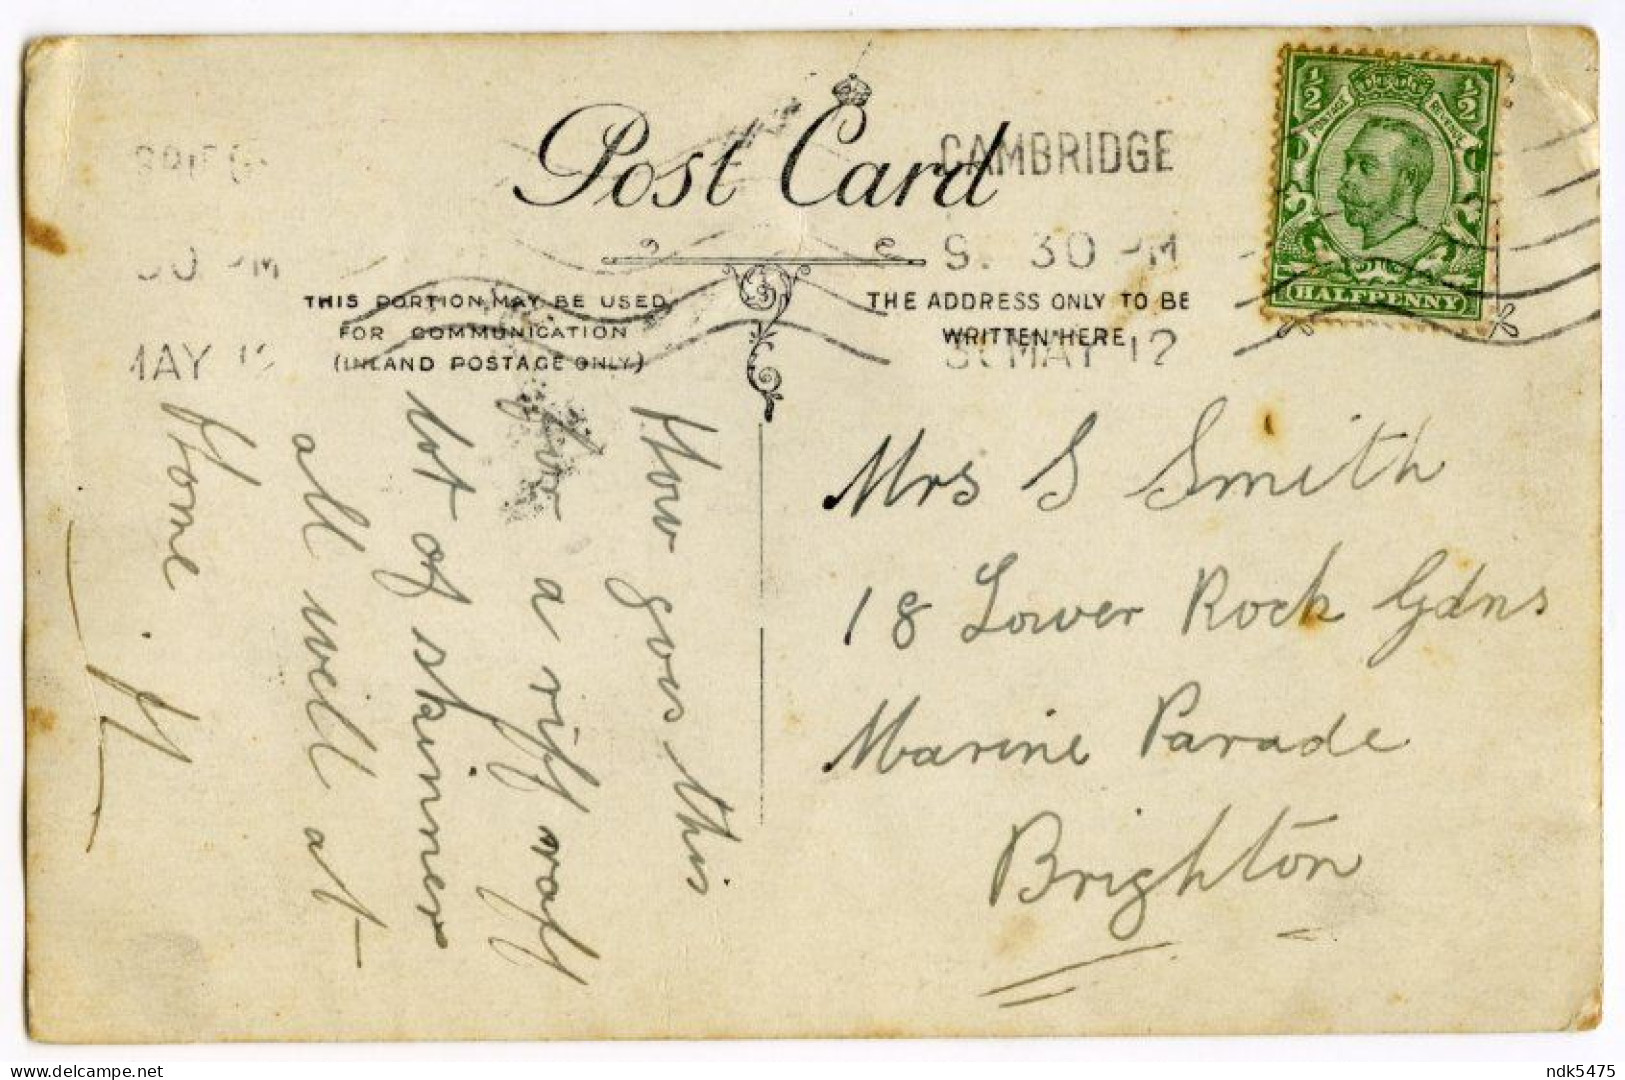 Post Card
CAMBRIDGE
9. 30 PM
31 MAY 12
30 PM
MAY 12
1/2
1/2
POSTAGE
REVENUE
HALFPENNY
THIS PORTION MAY BE USED
FOR COMMUNICATION
(INLAND POSTAGE ONLY)
THE ADDRESS ONLY TO BE
WRITTEN HERE
How goes this
for a riff raff
lot of skinners
all well at
Home
Mrs S Smith
18 Lower Rock Gdns
Marine Parade
Brighton
ndk5475